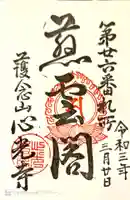 第廿六番札所
令和三年
三月廿日
慈雲閣
護念山心光寺